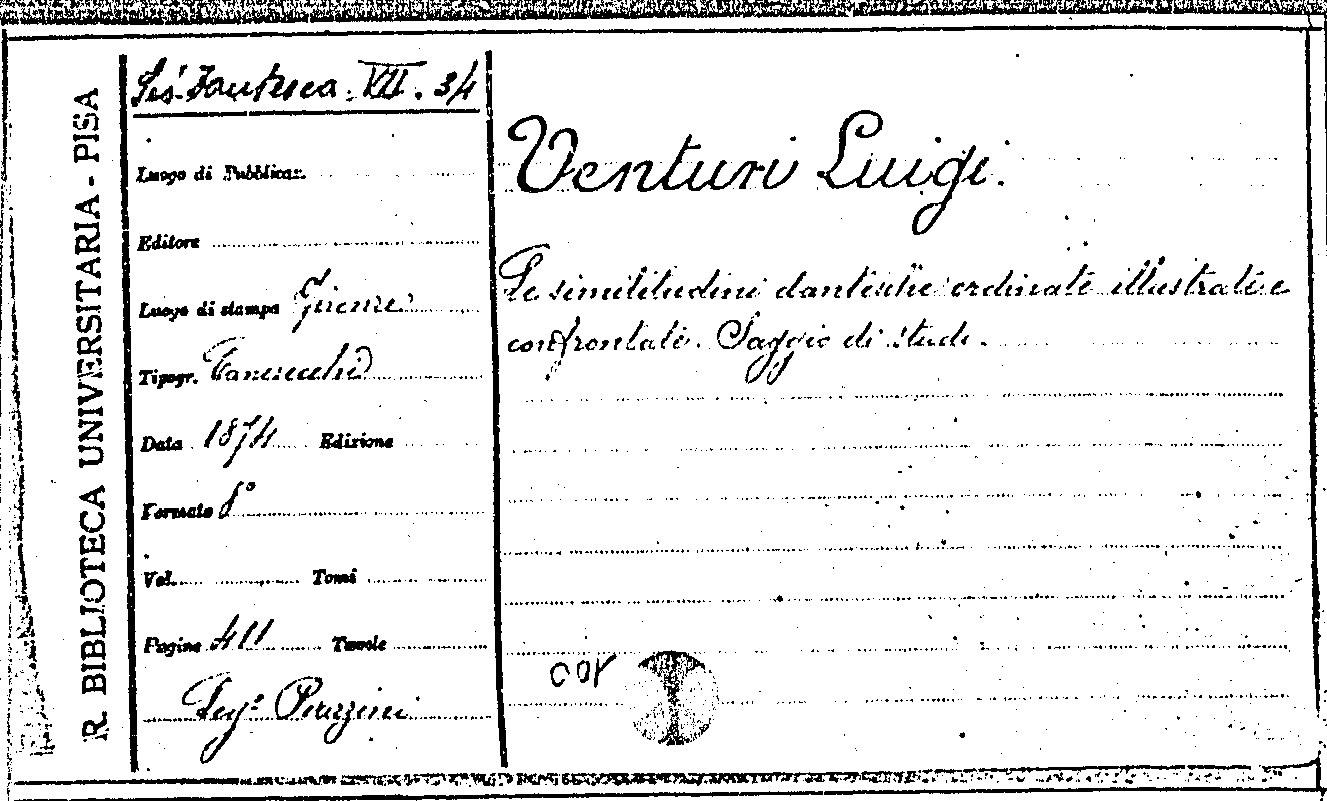 R. BIBLIOTECA UNIVERSITARIA - PISA
VII. 34
Luogo di Pubblicaz.
Editore
Luogo di stampa Firenze
Tipogr.
Data 1874 Edizione
Formato 8°
Vol. Tomi
Pagine 411 Tavole
Piazzini
Venturi Luigi.
Le similitudini dantesche ordinate illustrate e
confrontate. Saggio di studi.